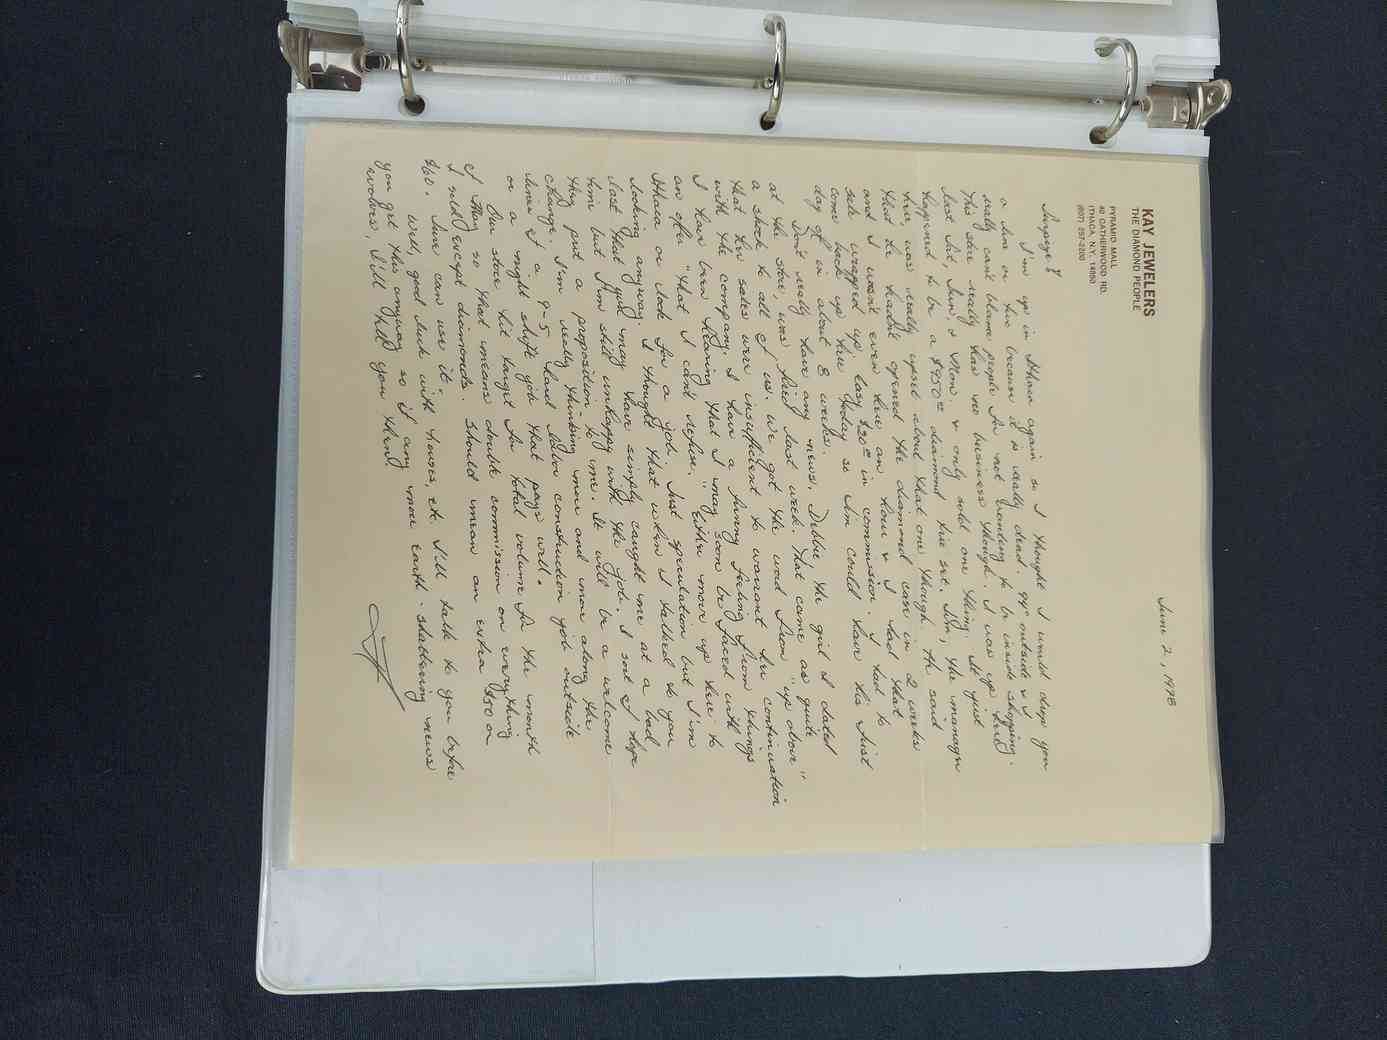 KAY JEWELERS
THE DIAMOND PEOPLE
PYRAMID MALL
40 CATHERWOOD RD.
ITHACA, N.Y. 14850
(607) 257-2200
June 2, 1978
I'm up in Ithaca again so I thought I would drop you
a line or two because it is really dead. 94° outside & I
really can't blame people for not wanting to be inside shopping.
This store really has no business though. I was up here
last Sat, Sun, & Mon & only sold one thing. It just
happened to be a $950.00 diamond tree set. Jim, the manager
here, was really upset about that one though. He said
that he hadn't opened the diamond case in 2 weeks
and I wasn't even here an hour & I had that
sale wrapped up. Easy $30.00 in commission. I had to
come back up here today so Jim could have his first
day off in about 3 weeks.
Don't really have any news. Debbie the girl I dated
at the store, was fired last week. That came as quite
a shock to all of us. We got the word from "up above"
that her sales were insufficient to warrant her continuation
with the company. I have a funny feeling from things
I have been hearing that I may soon be faced with
an offer "that I can't refuse." Either move up here to
Ithaca or look for a job. Just speculation but I'm
looking anyway. I thought that when I talked to you
last that you may have simply caught me at a bad
time but I'm still unhappy with the job. I sort of hope
they put a proposition to me. It will be a welcome
change. I'm really thinking more and more along the
lines of a 9-5 hard labor construction job outside
or a night shift job that pays well.
Our store hit target for total volume for the month
of May so that means double commission on everything
I sold except diamonds. Should mean an extra $50 or
$60. Sure can use it.
Well, good luck with houses, etc. I'll talk to you before
you get this anyway so if any more earth-shattering news
evolves, I'll tell you then.